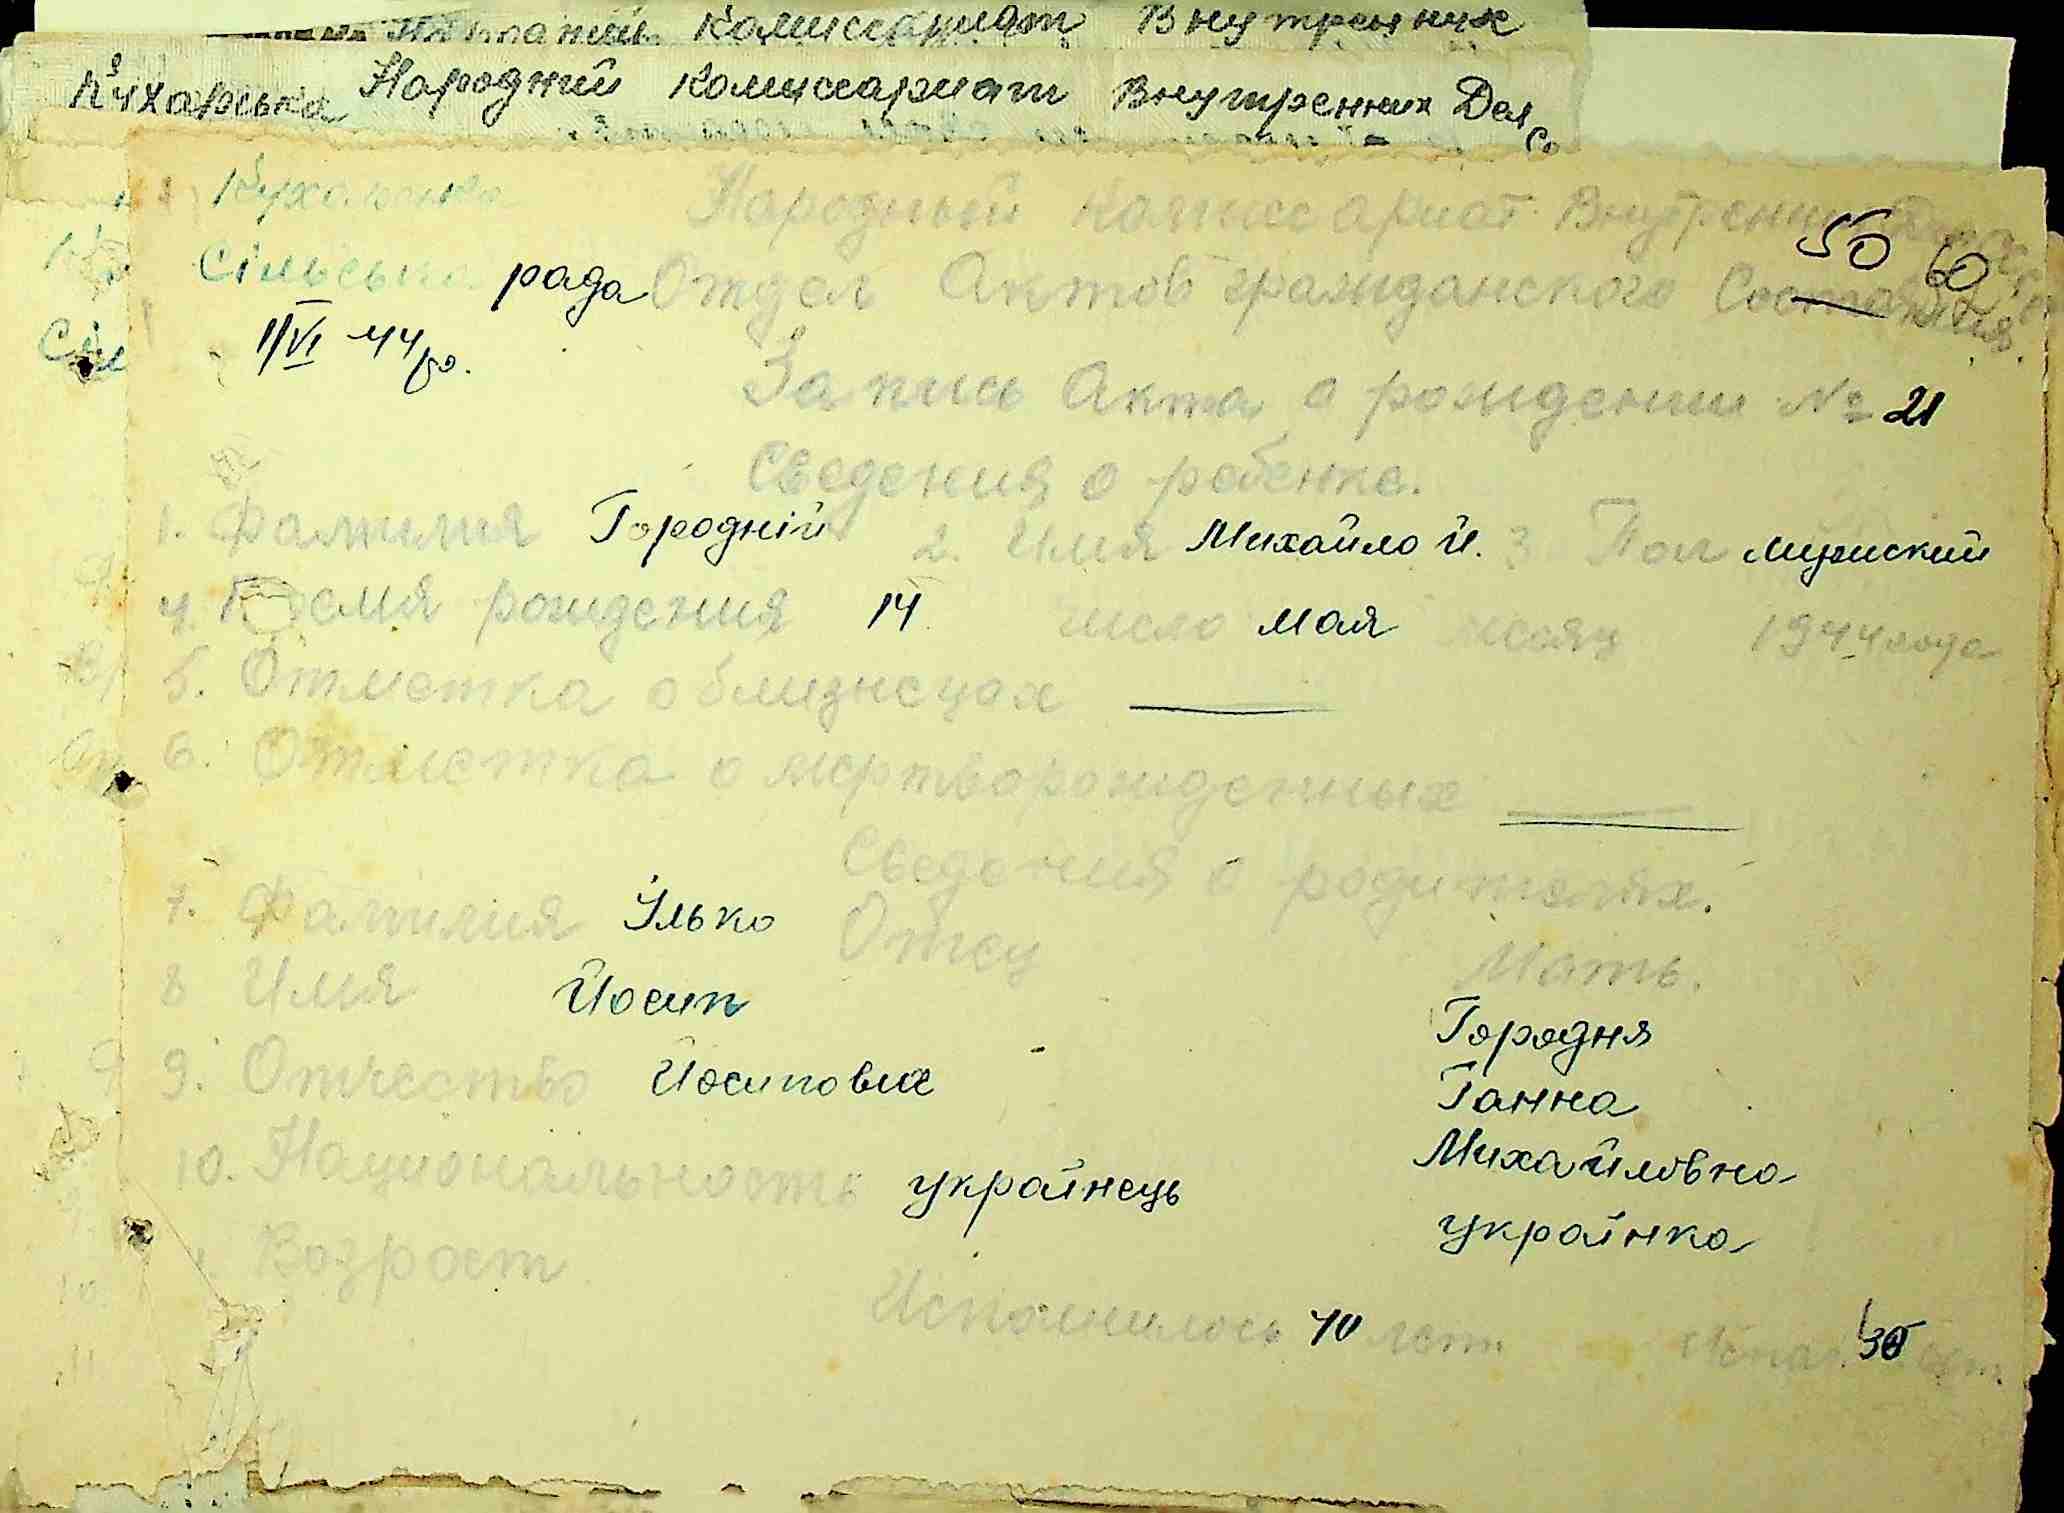 Комиссариат Внутренних
Кухарська Народний Комиссариат Внутренних Дел
Кухарська Народный Комиссариат Внутренних
50 60
Сільська рада Отдел Актов гражданского Состояния.
1/VI 44 р.
Запись Акта о рождении № 21
Сведения о ребенке.
1. Фамилия Городній 2. Имя Михайло Й. 3 Пол мужский
4. Время рождения 14 число мая месяц 1944 года
5. Отметка о близнецах
6. Отметка о мертворожденных
Сведения о родителях.
7. Фамилия Ілько Отец Мать.
8 Имя Йосип Городня
9. Отчество Йосипович Ганна
10. Национальность украінець Михайловна
украінка
Возраст
Исполнилось 40 лет.